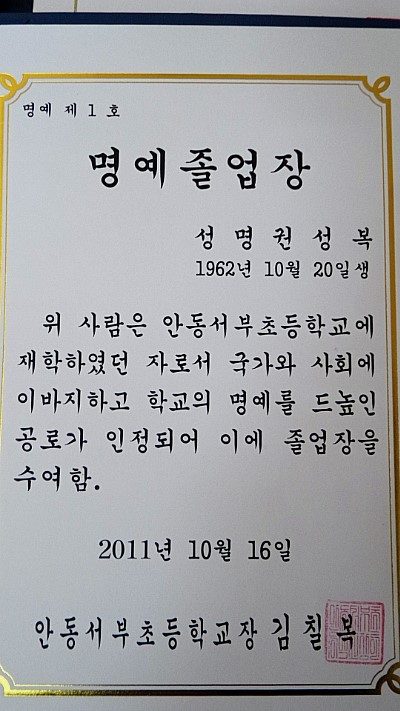 명예 제 1 호
명예졸업장
성 명 권 성 복
1962년 10월 20일생
위 사람은 안동서부초등학교에
재학하였던 자로서 국가와 사회에
이바지하고 학교의 명예를 드높인
공로가 인정되어 이에 졸업장을
수여함.
2011년 10월 16일
안동서부초등학교장 김 칠 복